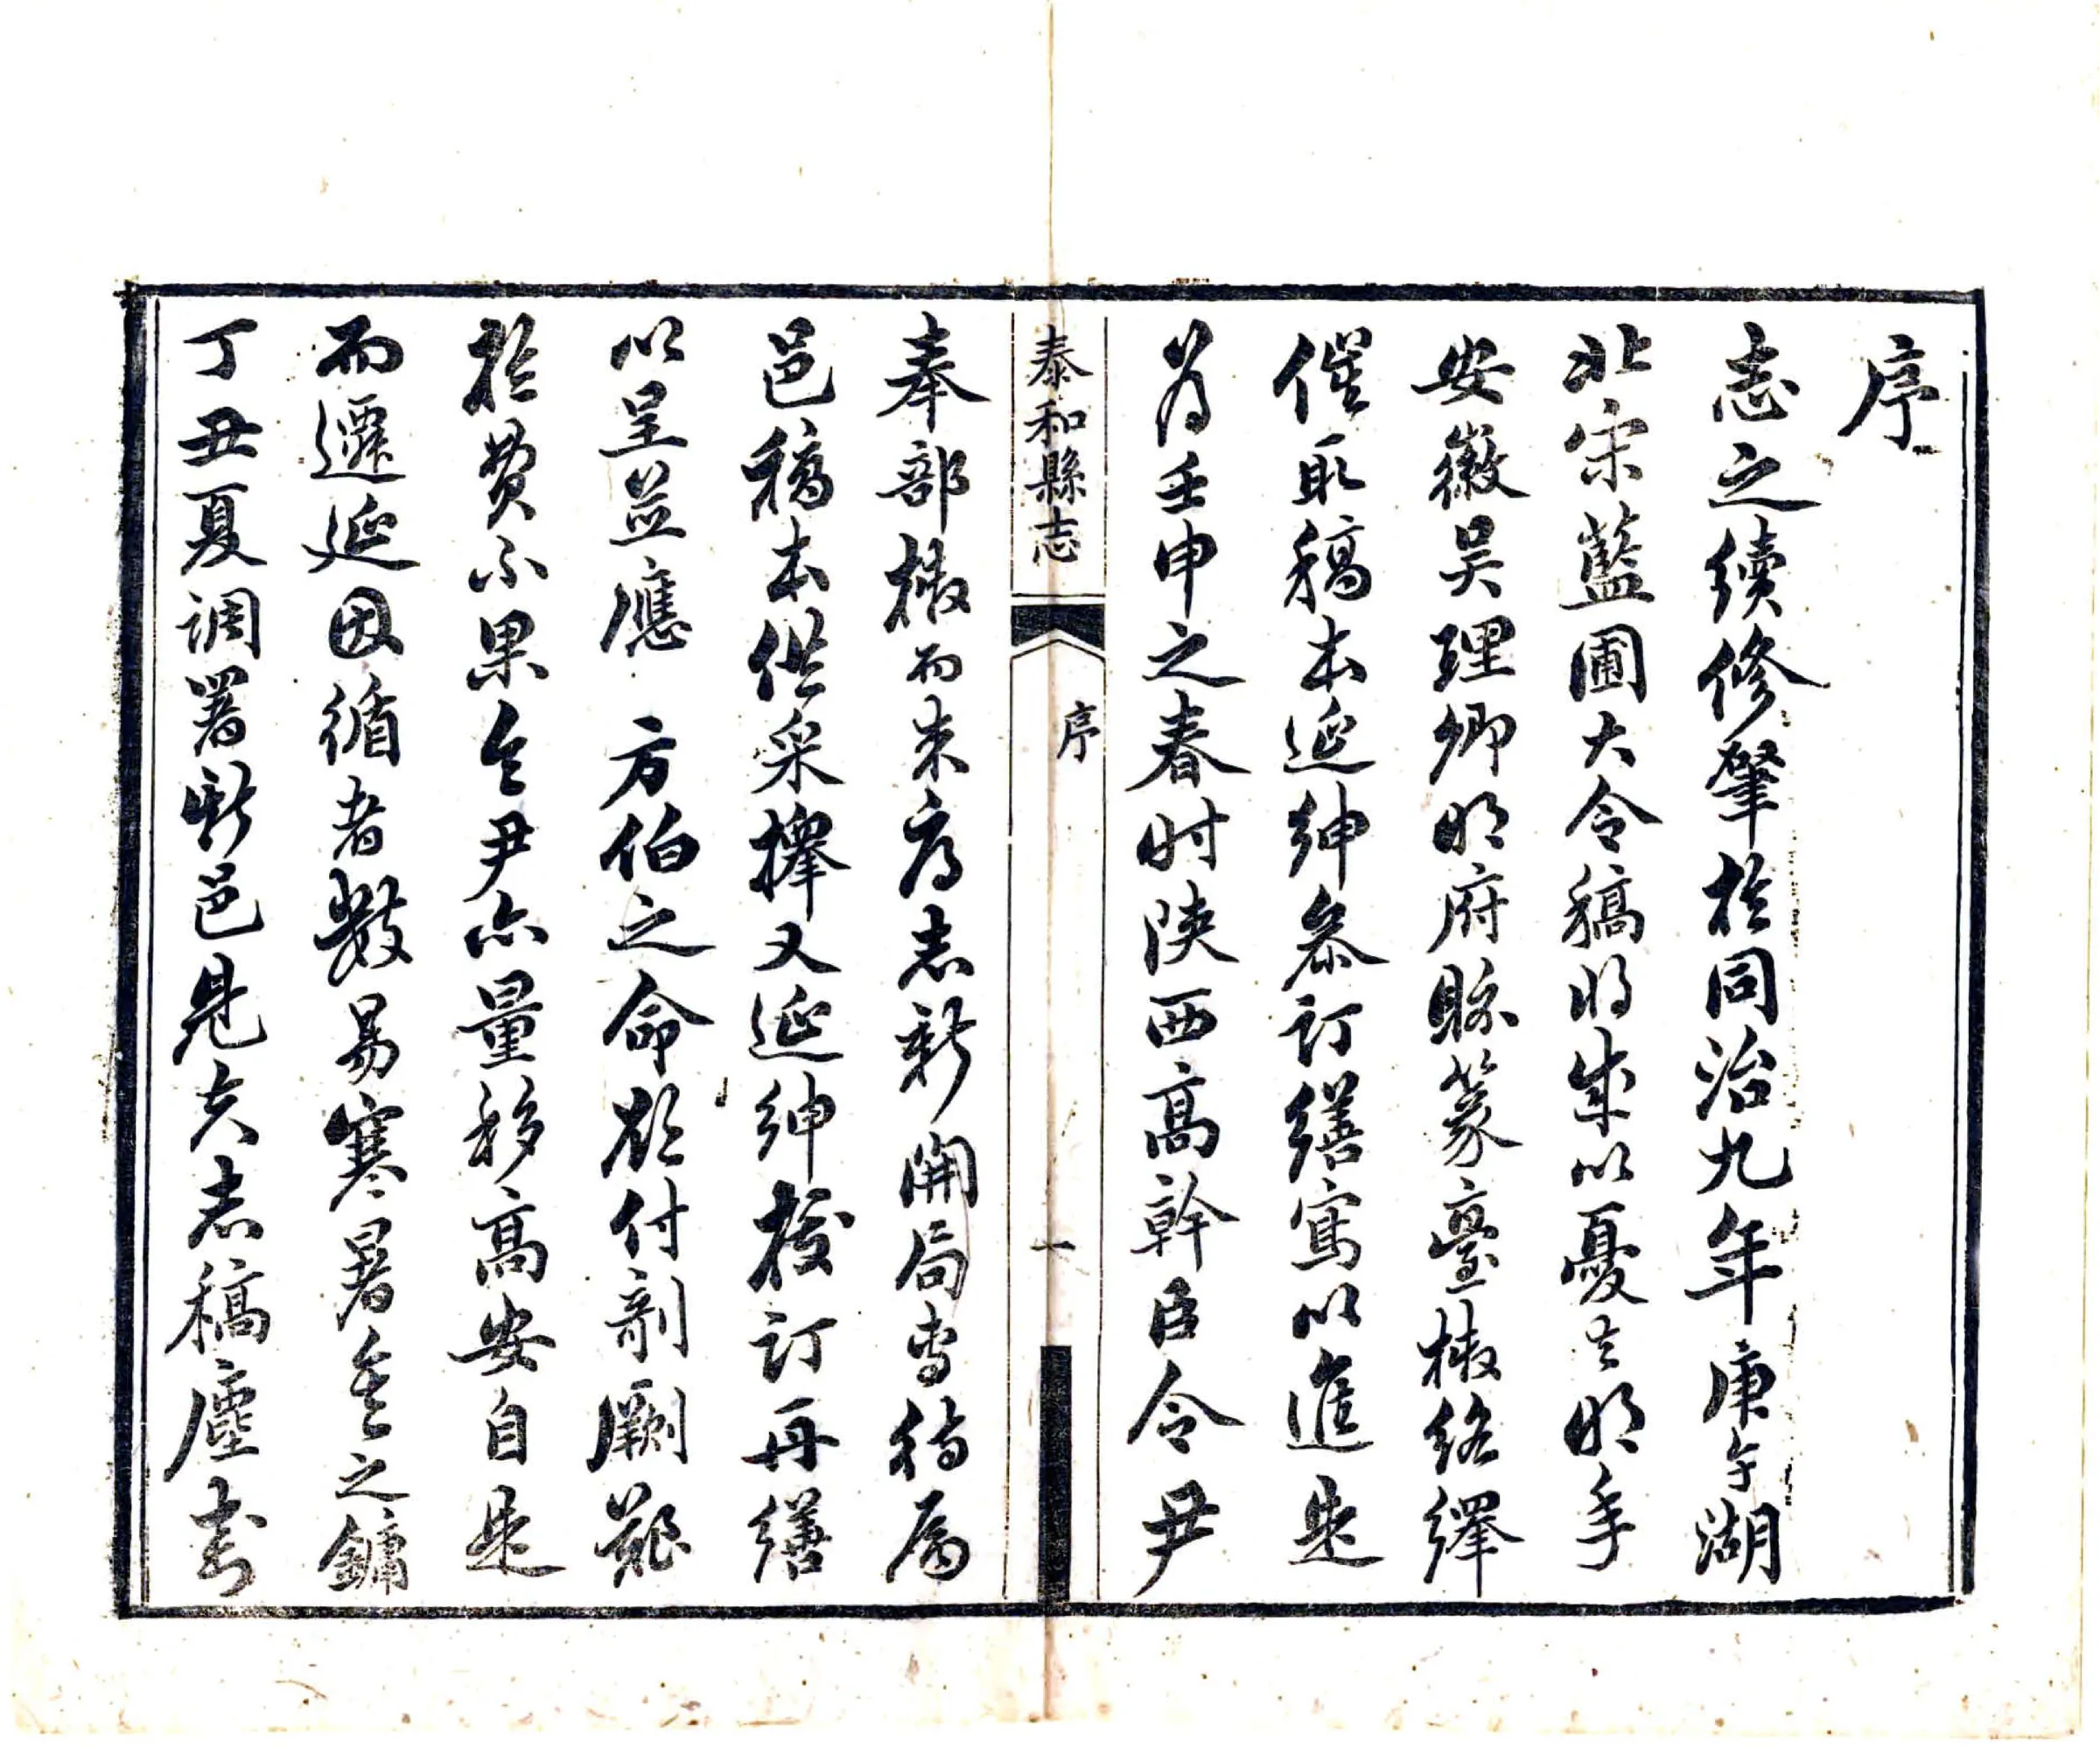 序
志之續修肇於同治九年庚午湖
北宋藍圃大令稿將成以憂去明年
安徽吳理卿明府縣篆臺檄絡繹
催取稿本延紳參訂繕寫以進是
為壬申之春時陝西高幹臣令尹
泰和縣志
序
一
奉部檄而來府志新開局専待屬
邑稿本供采擇又延紳校訂再繕
以呈並應方伯之命欲付剞劂艱
於費不果令尹亦量移高安自是
而遷延因循者數易寒暑矣之鏞
丁丑夏調署斯邑見夫志稿塵封